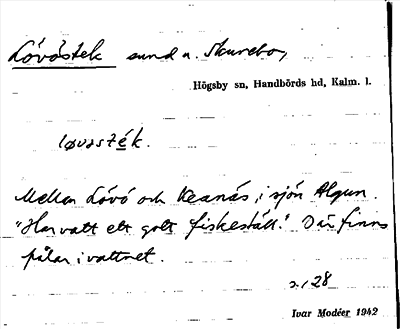 Lövöstek sund u. Skurebo,
Högsby sn, Handbörds hd, Kalm. l.
løvəsték.
Mellan Lövö och Kranäs, i sjön Algun.
"Har vatt ett gott fiskeställ." Där finns
pålar i vattnet.
s. 128
Ivar Modéer 1942